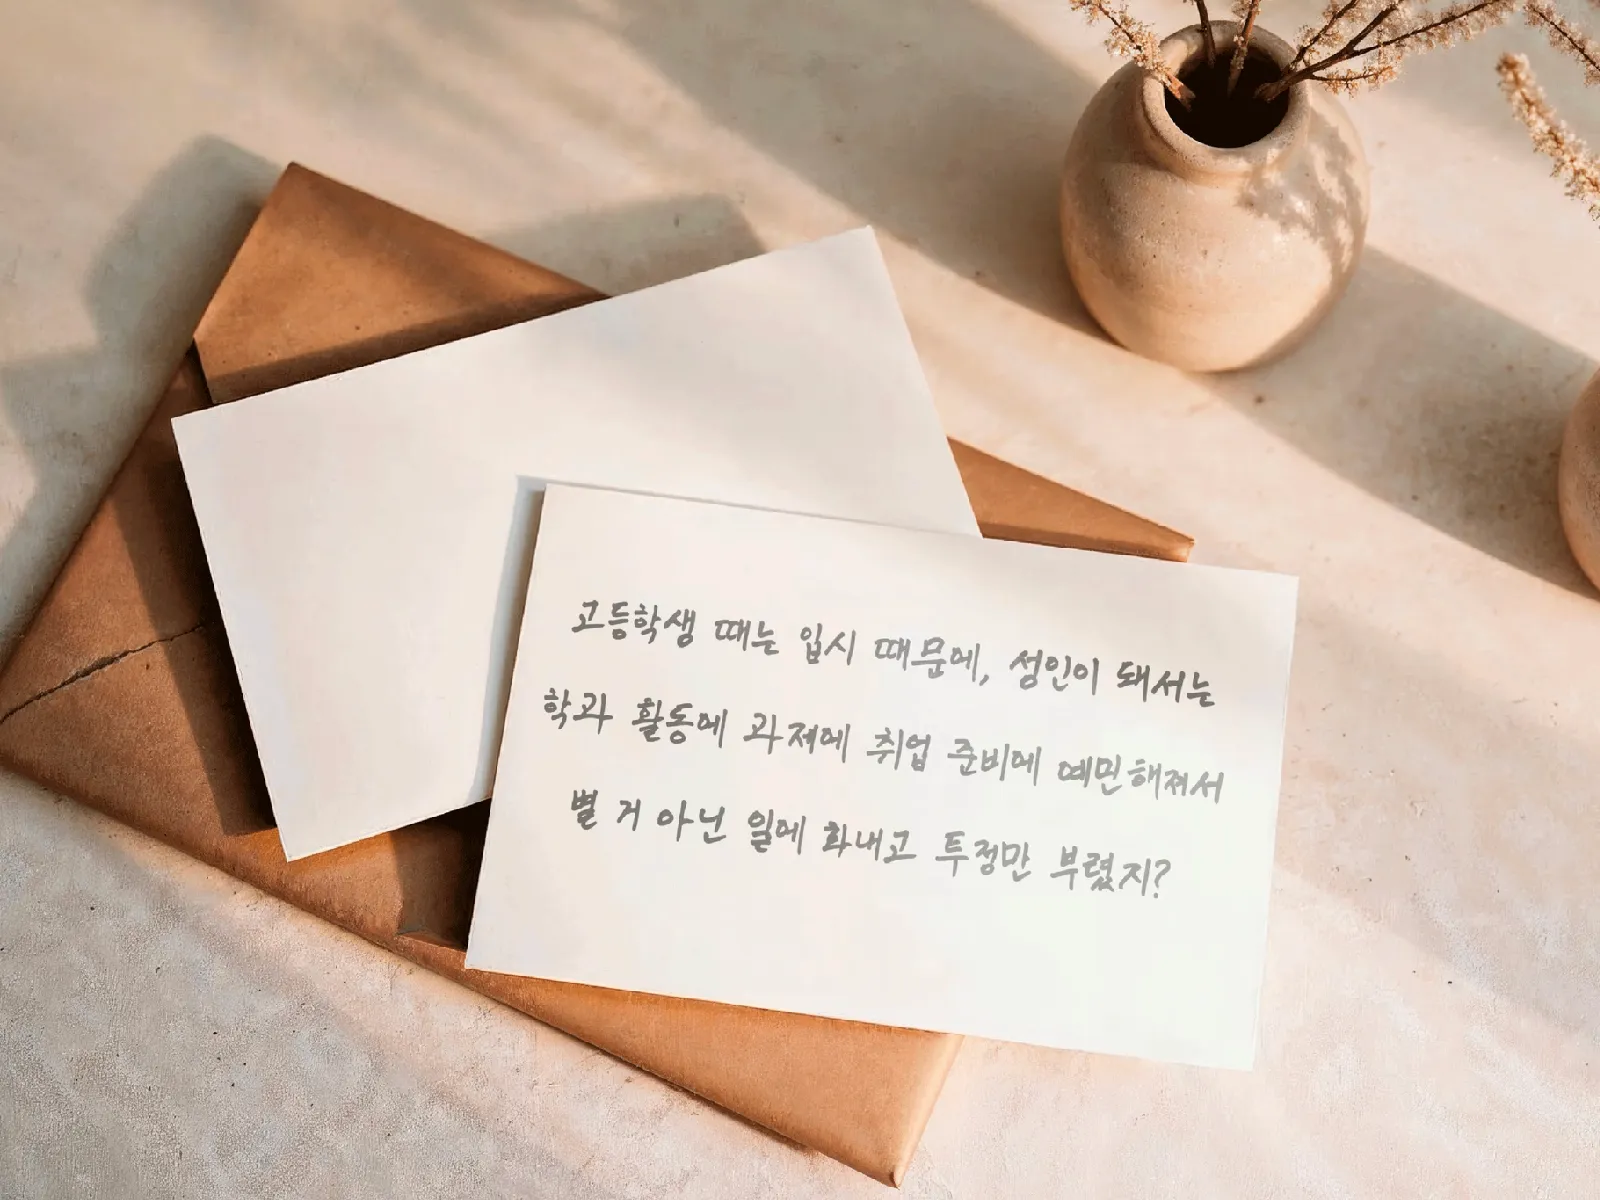 고등학생 때는 입시 때문에, 성인이 돼서는
학과 활동에 과제에 취업 준비에 예민해져서
별 거 아닌 일에 화내고 투정만 부렸지?